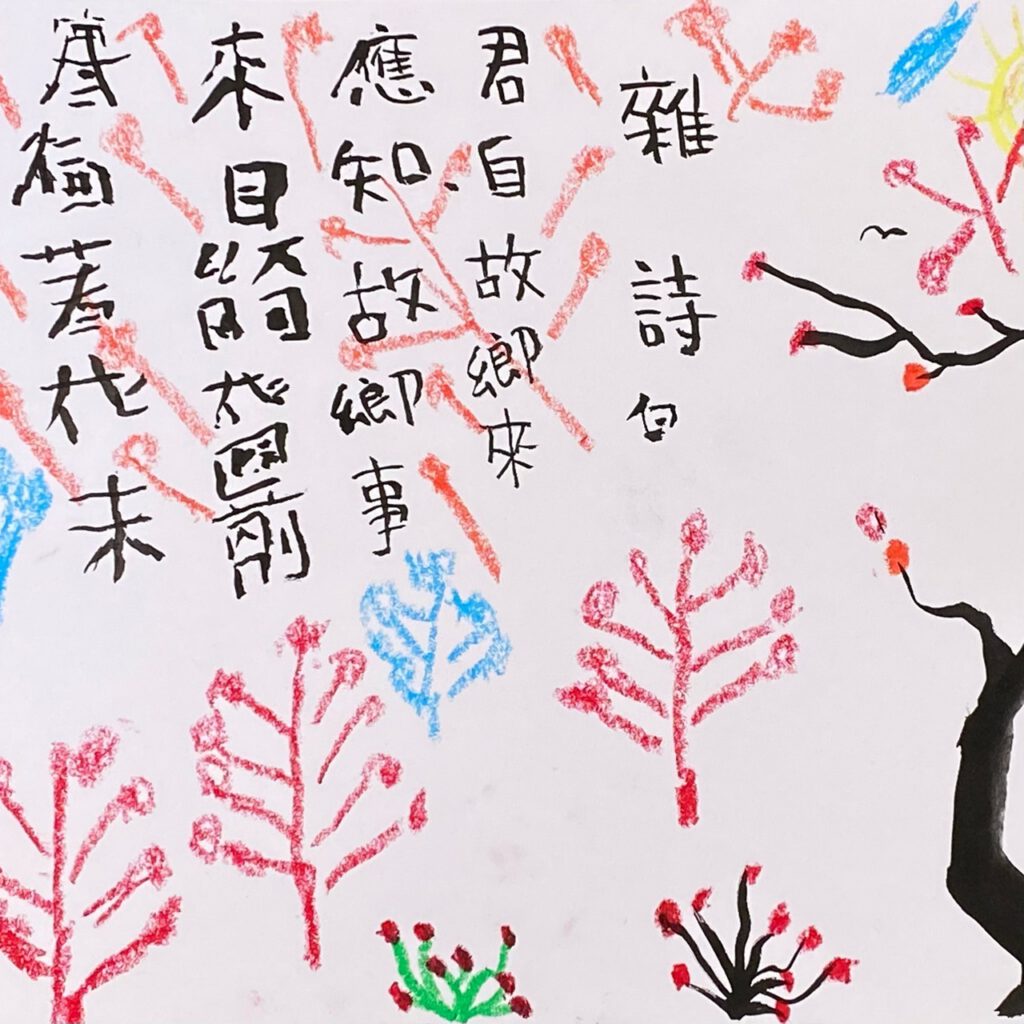 雜詩
君自故鄉來
應知故鄉事
來日前
寒梅著花未